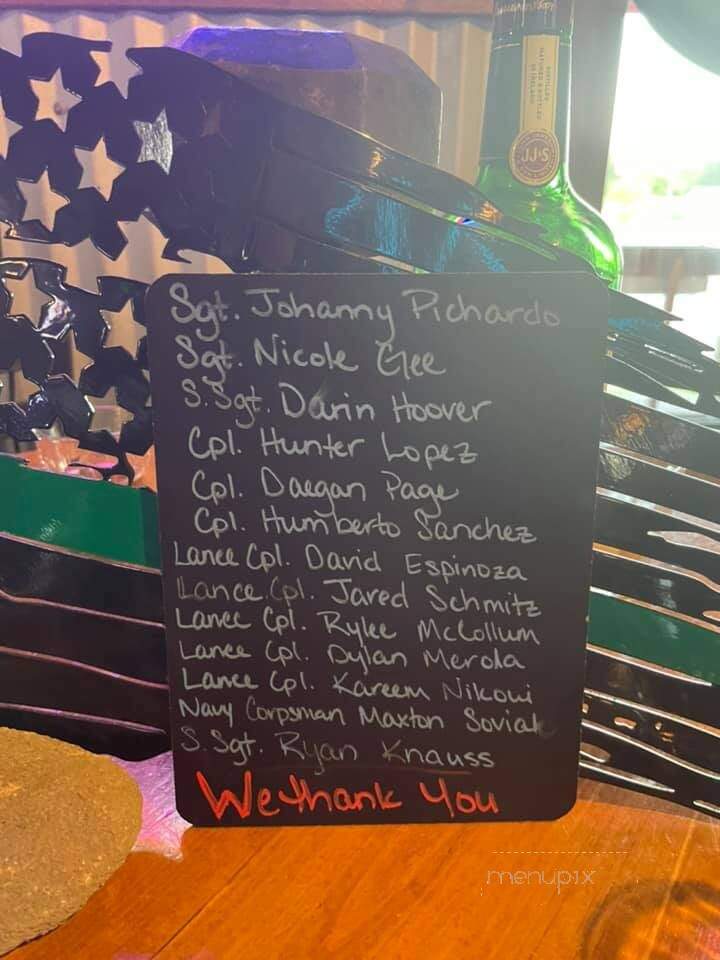 JJ&S
Sgt. Johanny Pichardo
Sgt. Nicole Gee
S.Sgt. Darin Hoover
Cpl. Hunter Lopez
Cpl. Daegan Page
Cpl. Humberto Sanchez
Lance Cpl. David Espinoza
Lance Cpl. Jared Schmitz
Lance Cpl. Rylee McCollum
Lance Cpl. Dylan Merola
Lance Cpl. Kareem Nikoui
Navy Corpsman Maxton Soviak
S.Sgt. Ryan Knauss
We thank You
menupix